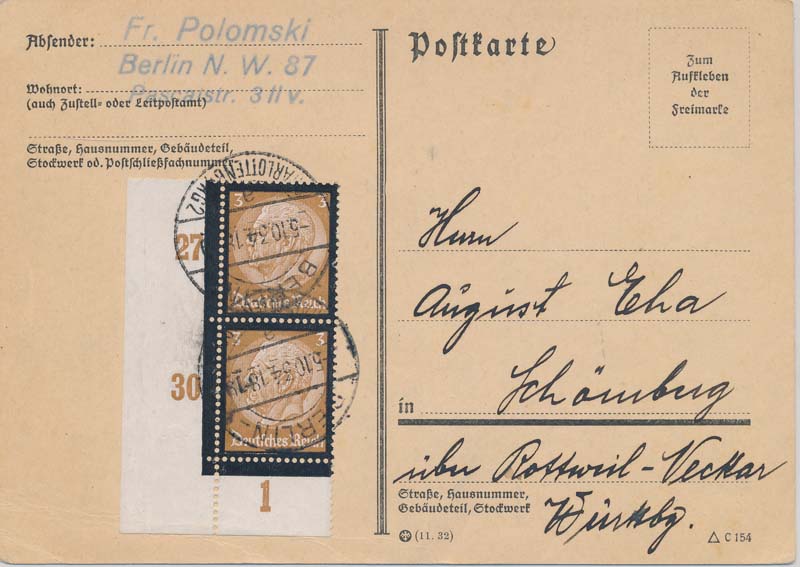 Absender: Fr. Polomski
Berlin N. W. 87
Wohnort: Pascalstr. 3 II v.
(auch Zustell- oder Leitpostamt)
Straße, Hausnummer, Gebäudeteil,
Stockwerk od. Postschließfachnummer
27
30
1
3
3
Deutsches Reich
3
3
Deutsches Reich
CHARLOTTENBURG 2
-5.10.34.18
BERLIN
-5.10.34.18
BERLIN-
Postkarte
Zum
Aufkleben
der
Freimarke
Herrn
August Eha
in Schömberg
über Rottweil-Neckar
Straße, Hausnummer,
Gebäudeteil, Stockwerk
Württbg.
(11. 32)
C 154